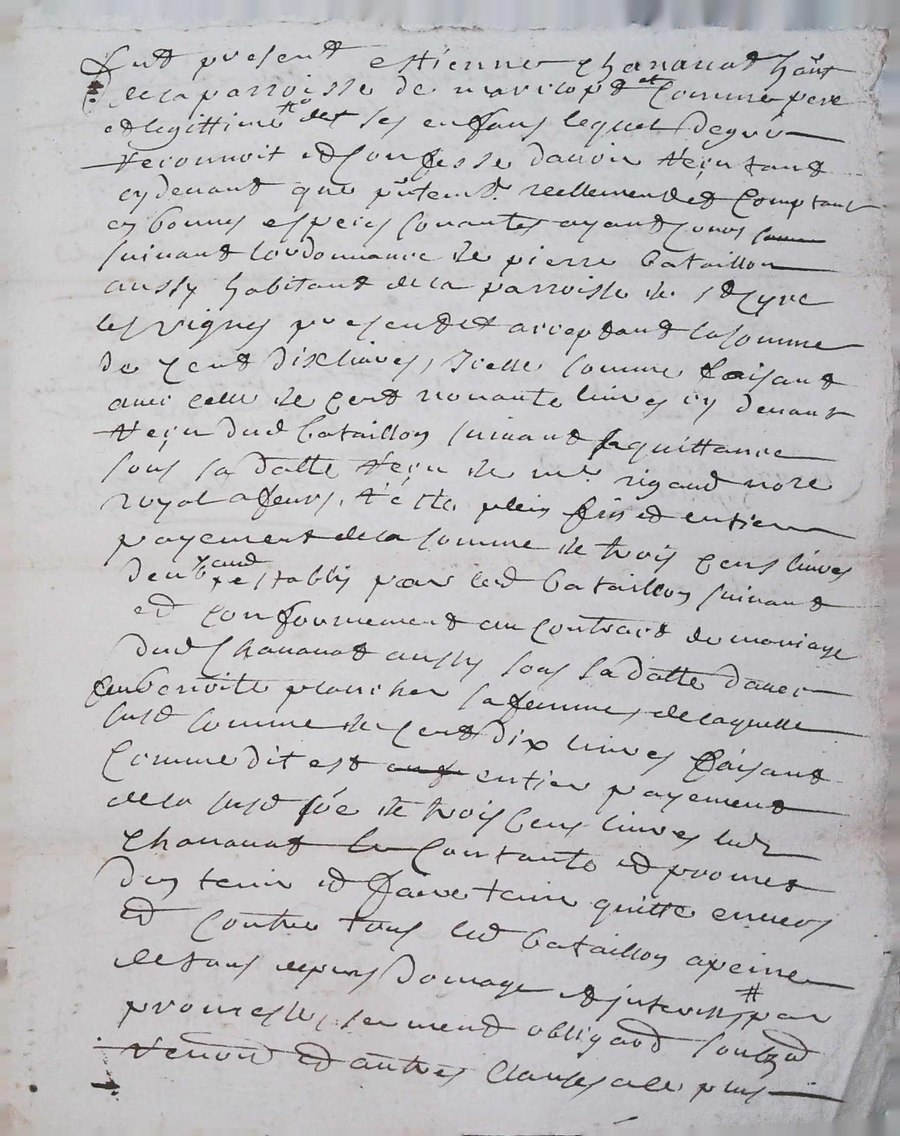 fut present estienne Chavanat hant
de la parroisse de comme pere
et legittime de ses enfans lequel de gré
reconnoit et confesse d'avoir reçu tant
cy devant que pntemt reellement et comptant
en bonnes especes sonantes ayant cours
suivant l'ordonnance de pierre bataillon
aussy habitant de la parroisse de st Cyre
les vignes present et acceptant la somme
de cent dix livres, Icelle somme faisant
avec celle de cent nonante livres cy devant
reçu dud bataillon suivant la quittance
sous sa datte reçu de me rigaud nore
royal a feurs, reste plein fin et entier
payement de la somme de trois cens livres
par led bataillon suivant
et conformement au contract de mariage
dud Chavanat aussy sous sa datte d'avec
benoite plancher sa femme, de laquelle
susd somme de cent dix livres faisant
comme dit est entier payement
de la susd soe de trois cens livres led
Chavanat se contante et promet
d'en tenir et faire tenir quitte envers
et contre tous led bataillon a peine
de tous depens domage et interest, # par
promesse, serment obligaon soubzmon
renonon et autres clauses a ce plus